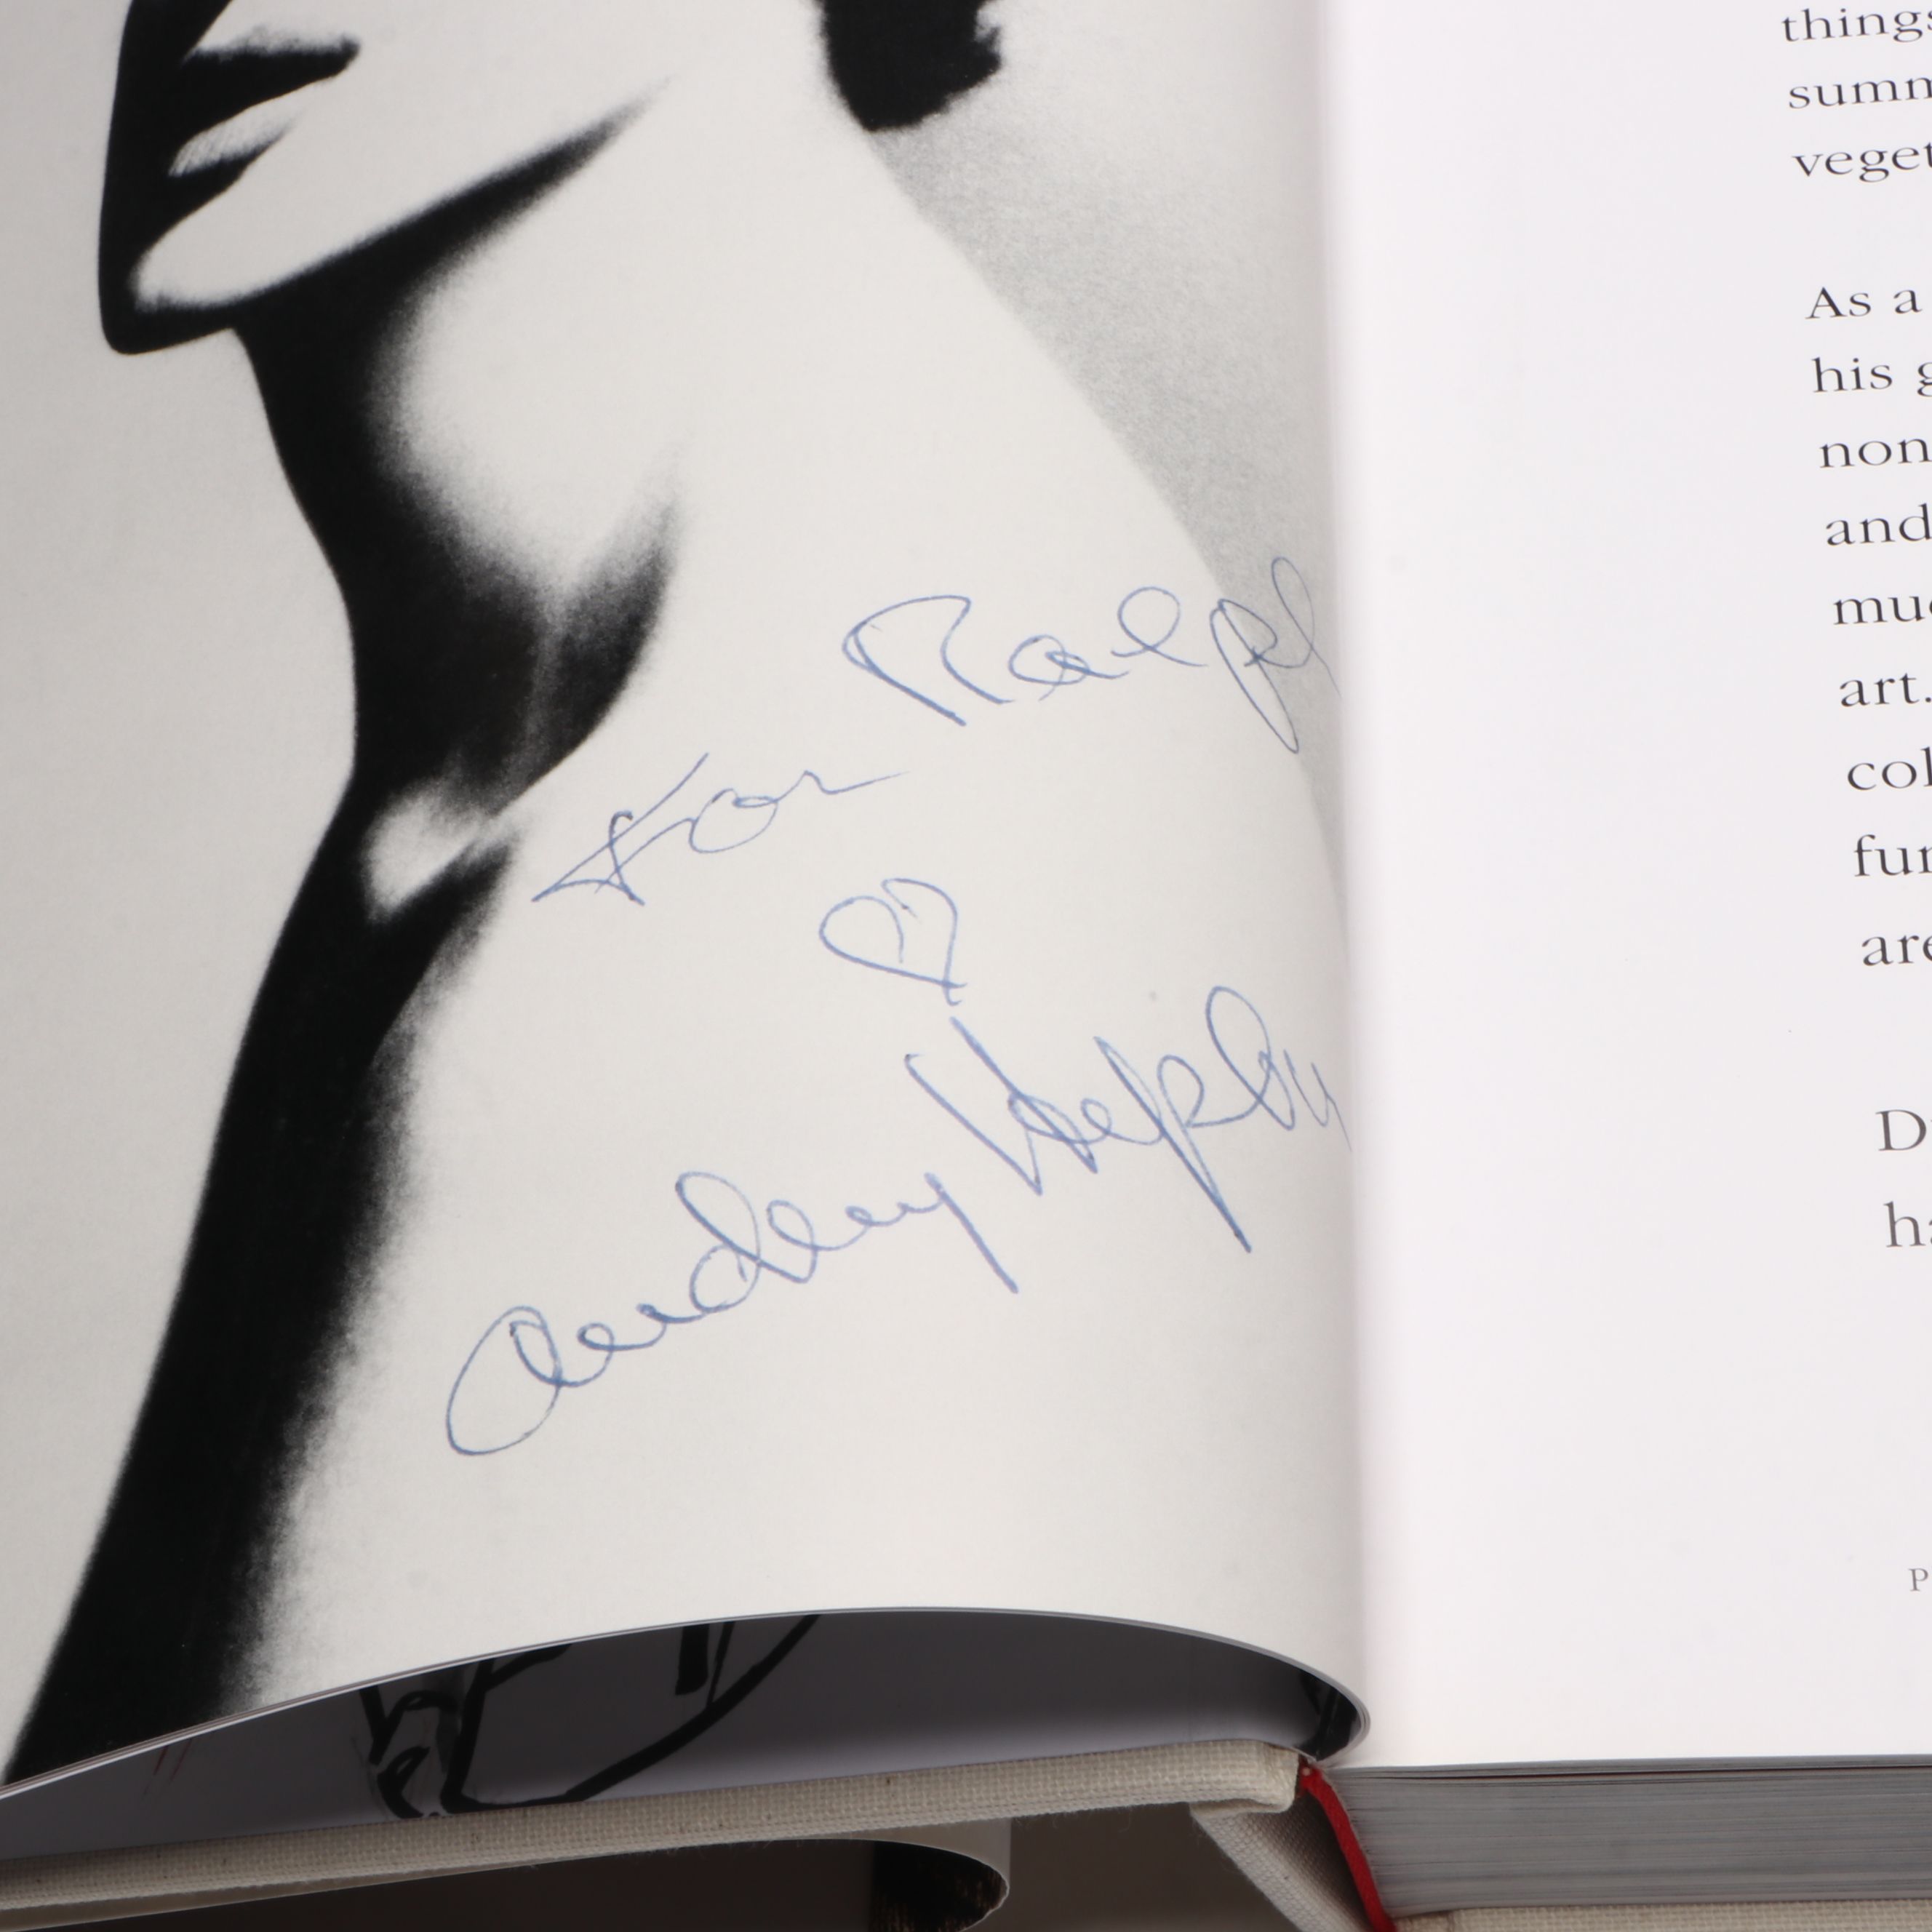 For Ralph
♡
Audrey Hepbu
things
summ
veget
As a
his g
non
and
muc
art.
col
fur
are
D
ha
P